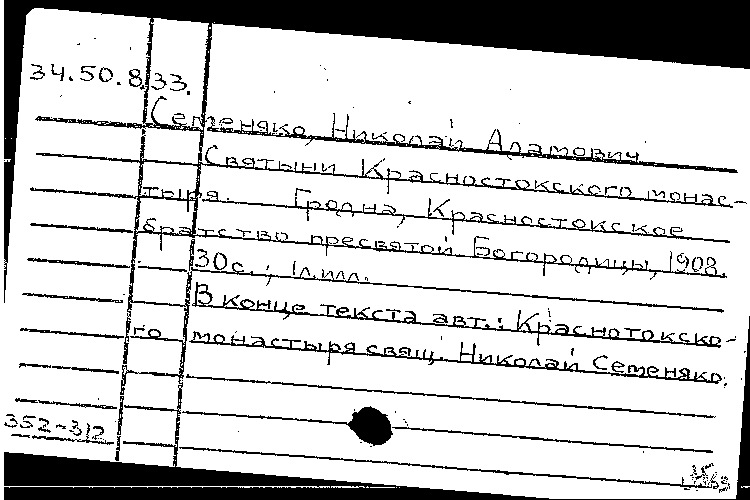 34.50.8.33.
Семеняко, Николай Адамович
Святыни Красностокского монас-
тыря. Гродна, Красностокское
братство пресвятой Богородицы, 1908.
30с.; 1л.илл.
В конце текста авт.: Краснотокско-
го монастыря свящ. Николай Семеняко.
352-312